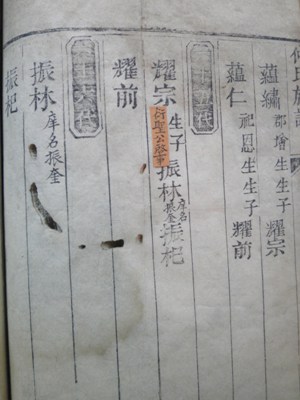 氏族
蘊繡 郡增生生子耀宗
蘊仁 祀恩生生子耀前
五代
耀宗 生子振林庠名振奎振杞
衍聖公
耀前
六代
振林 庠名振奎
振杞